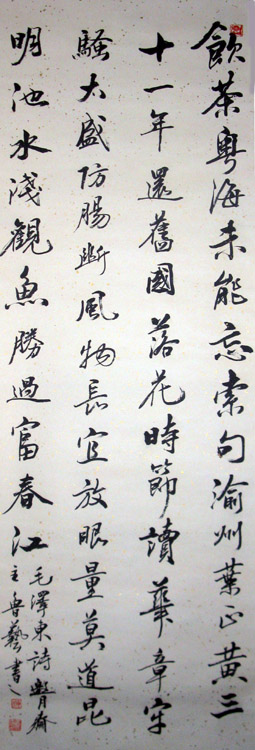 飲茶粵海未能忘索句渝州葉正黃三
十一年還舊國落花時節讀華章牢
騷太盛防腸斷風物長宜放眼量莫道昆
明池水淺觀魚勝過富春江
毛澤東詩齋
主魯藝書